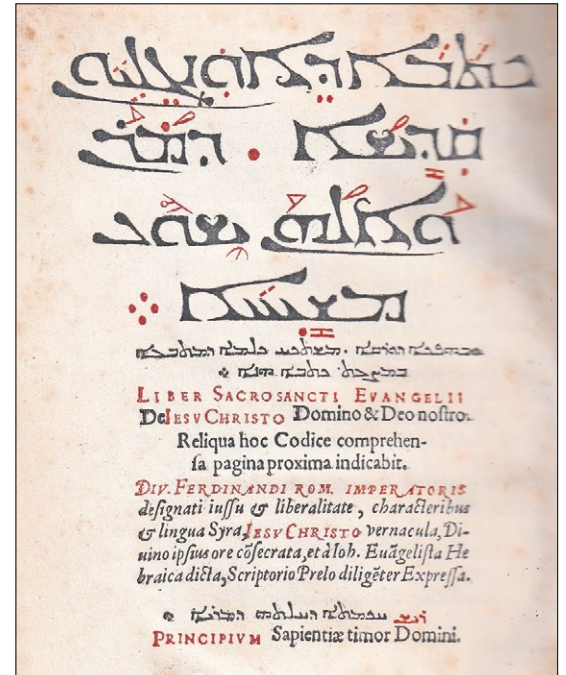 ܟܬܒܐ ܕܐܘܢܓܠܝܘܢ
ܩܕܝܫܐ . ܕܡܪܢ
ܘܐܠܗܢ ܝܫܘܥ
ܡܫܝܚܐ
LIBER SACROSANCTI EVANGELII
De IESV CHRISTO Domino & Deo nostro.
Reliqua hoc Codice comprehen-
ſa pagina proxima indicabit.
DIV. FERDINANDI ROM. IMPERATORIS
deſignati iuſſu & liberalitate, characteribus
& lingua Syra, IESV CHRISTO vernacula, Di-
uino ipſius ore cõſecrata, et à Ioh. Euãgeliſta He
braica dicta, Scriptorio Prelo diligẽter Expreſſa.
PRINCIPIVM Sapientiæ timor Domini.